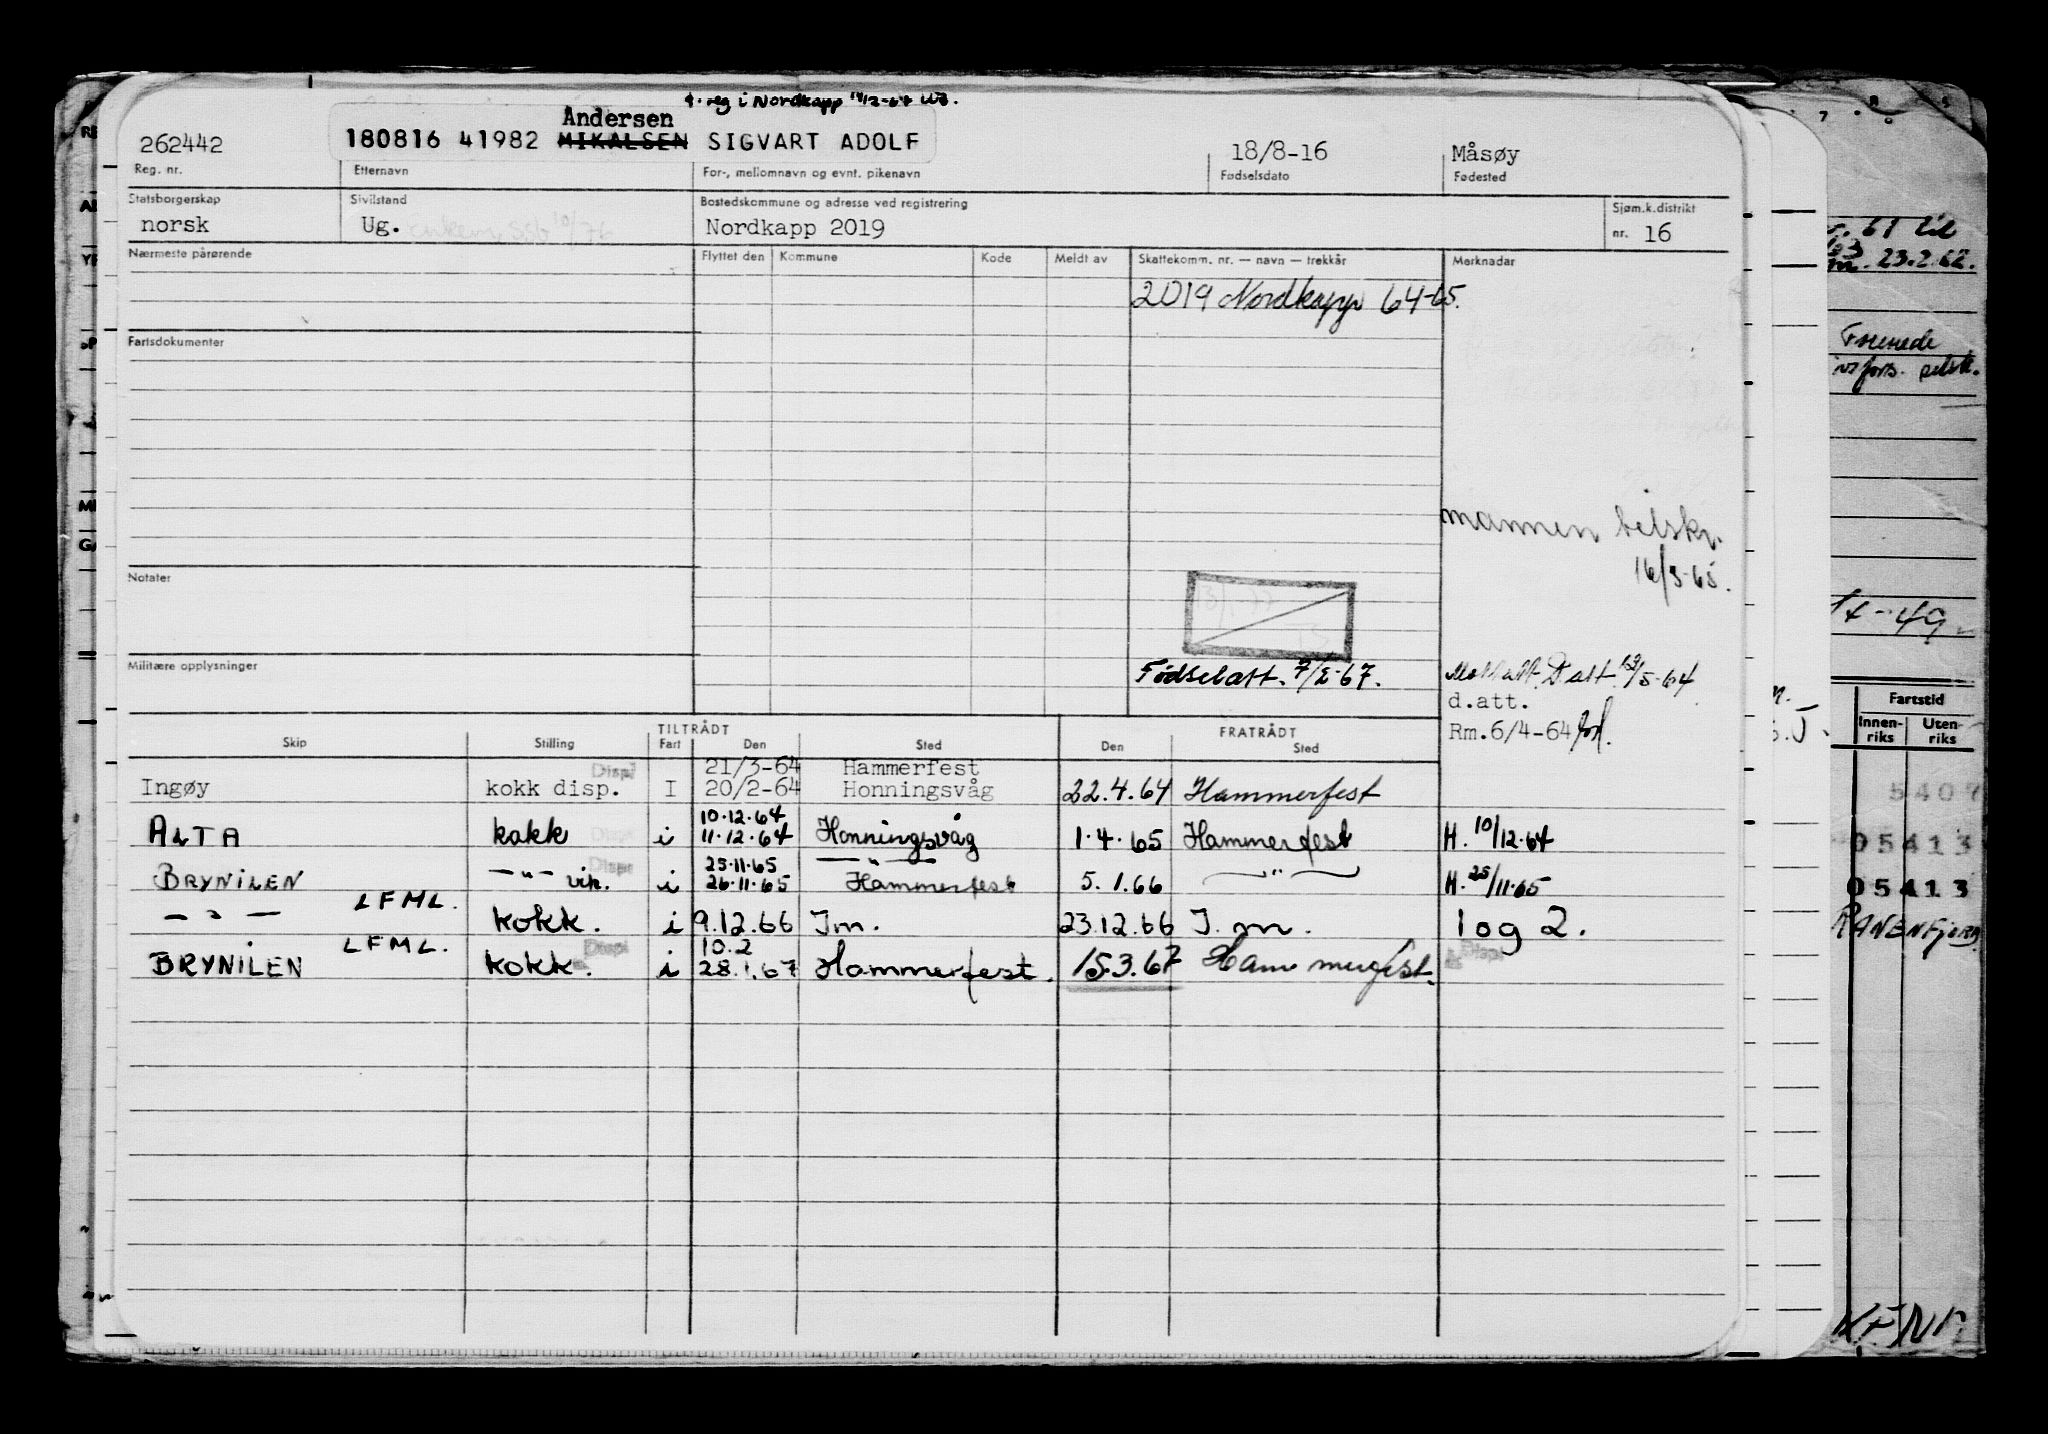 f. reg i Nordkapp
Andersen
262442 180816 41982 MIKALSEN SIGVART ADOLF 18/8-16 Måsøy
Reg. nr. Etternavn For-, mellomnavn og evnt. pikenavn Fødselsdato Fødested
Statsborgerskap Sivilstand Bostedskommune og adresse ved registrering Sjøm.k.distrikt
norsk Ug. Nordkapp 2019 nr. 16
Nærmeste pårørende Flyttet den Kommune Kode Meldt av Skattekomm. nr. — navn — trekkår Merknader
2019 Nordkapp 64-65.
Fartsdokumenter
mannen bilskr.
16/3-65.
Notater
Militære opplysninger
Fødselsatt. 7/2-67.
D att. 12/5-64
d.att.
Rm.6/4-64
TILTRÅDT FRATRÅDT
Skip Stilling Fart Den Sted Den Sted
Displ 21/3-64 Hammerfest
Ingøy kokk disp. I 20/2-64 Honningsvåg 22.4.64 Hammerfest
10.12.64
ALTA kokk i 11.12.64 Honningsvåg 1.4.65 Hammerfest H. 10/12-64
25.11.65 — " —
BRYNILEN — " — vik. i 26.11.65 Hammerfest 5.1.66 — " — H. 25/11-65
— " — LFML. kokk. i 9.12.66 I m. 23.12.66 I. m. 1 og 2.
LFML. Displ 10.2
BRYNILEN kokk. i 28.1.67 Hammerfest. 15.3.67 Hammerfest. Displ
61 til
23.2.62.
Fartstid
Innen-riks Uten-riks
5407
05413
05413
RANENFJORD